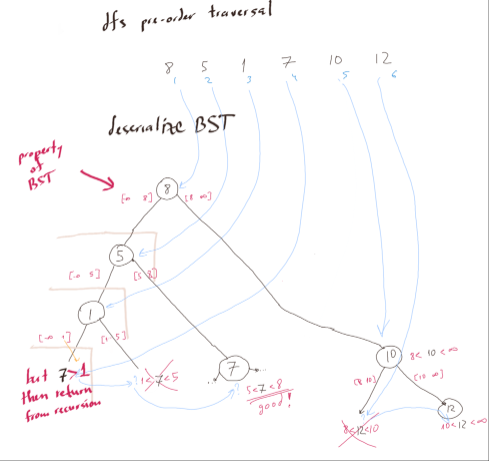 dfs pre-order traversal
8 5 1 7 10 12
1 2 3 4 5 6
deserialize BST
property
of
BST
8
[-∞ 8]
[8 ∞]
5
[-∞ 5]
[5 8]
1
[-∞ 1]
[1 5]
but 7>1
then return
from recursion
1<7<5
7
5<7<8
good!
10
8<10<∞
[8 10]
[10 ∞]
8<12<10
12
10<12<∞